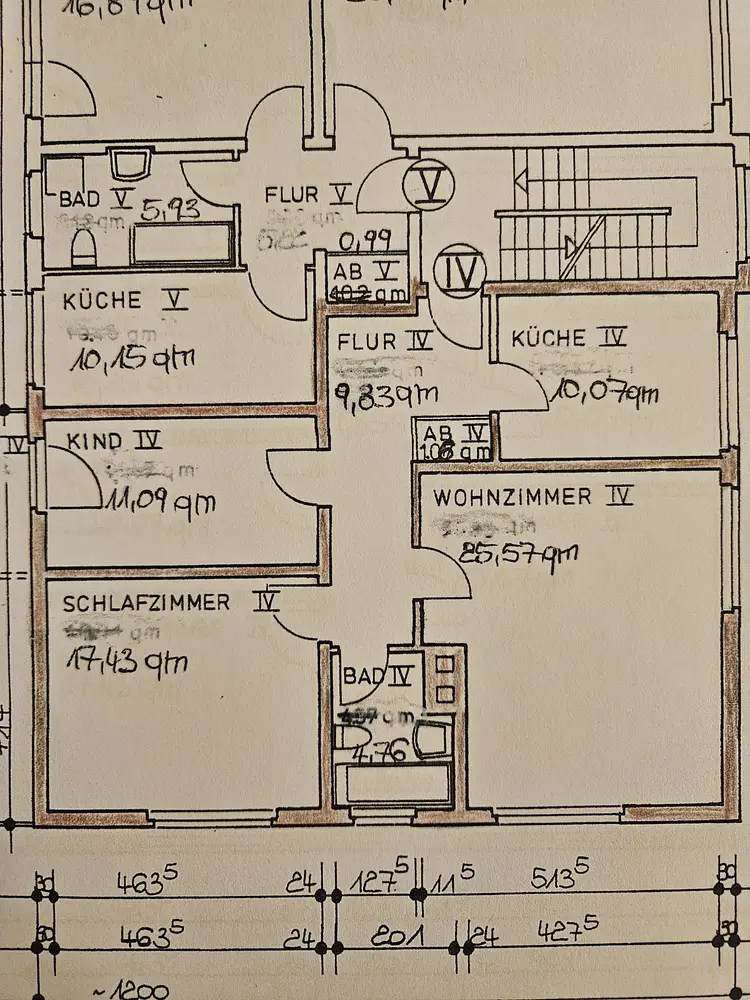 16,87qm
BAD V
5,93
qm
FLUR V
qm
V
0,99
AB V
1,02 qm
IV
KÜCHE V
qm
10,15qm
FLUR IV
9,83qm
KÜCHE IV
qm
10,07qm
IV
KIND IV
qm
11,09 qm
AB IV
1,08 qm
WOHNZIMMER IV
qm
25,57qm
SCHLAFZIMMER IV
qm
17,43 qm
BAD IV
4,97 qm
4,76
30 463⁵ 24 127⁵ 11⁵ 513⁵ 30
30 463⁵ 24 201 24 427⁵ 30
~1200